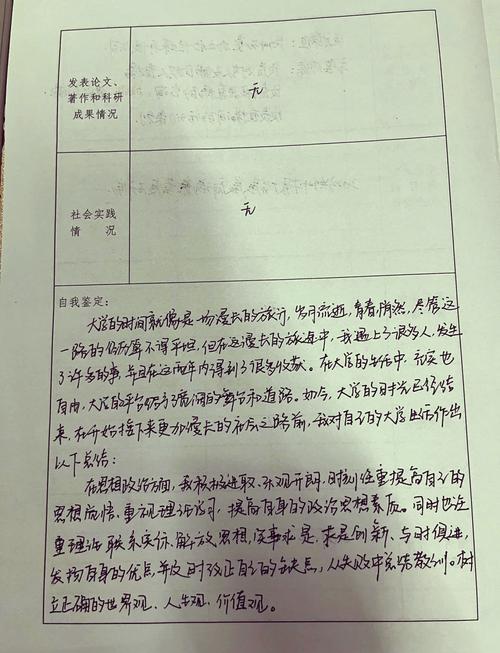 发表论文、
著作和科研
成果情况
无
社会实践
情 况
无
自我鉴定：
大学的时间就像是一场漫长的旅行，岁月流逝，青春悄然，尽管这
一路的经历算不得平坦，但在这漫长的旅途中，我遇上了很多人，发生
了许多的事，并且在这两年内得到了很多收获。在大学的生活中，充实也
自由，大学的平台给予了广阔的舞台和道路。如今，大学的时光已经结
束，在开始接下来更加漫长的社会之路前，我对自己的大学生活作出
以下总结：
在思想政治方面，我积极进取、乐观开朗，时刻注重提高自己的
思想觉悟、重视理论学习，提高自身的政治思想素质。同时也注
重理论联系实际、解放思想，实事求是，求是创新、与时俱进，
发扬自身的优点并及时改正自己的缺点，从失败中总结教训。树
立正确的世界观、人生观、价值观。